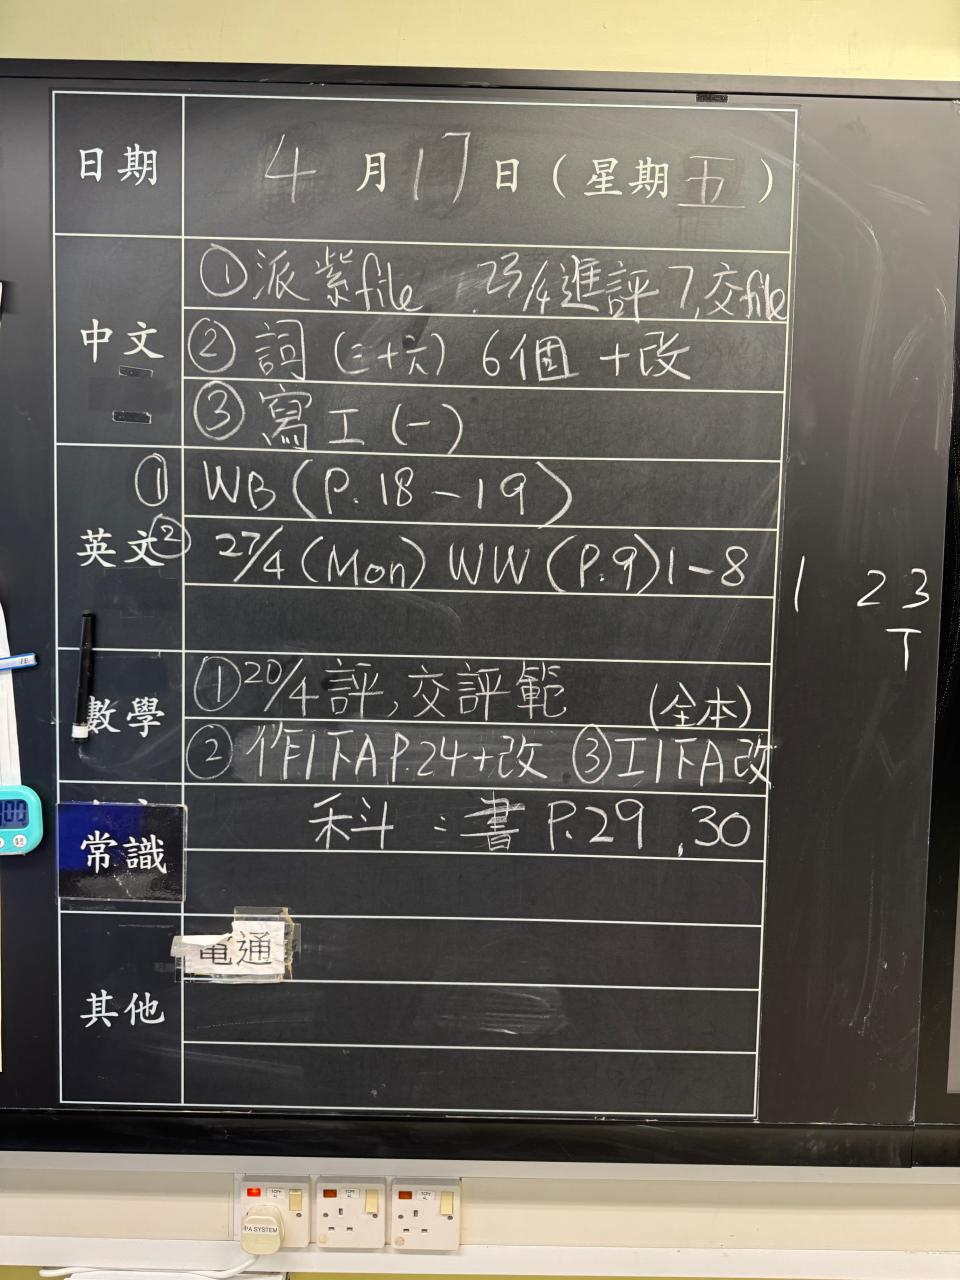 日期 4月17日（星期五）
中文
①派紫file 23/4進評7,交file
②詞(三十六) 6個 +改
③寫工(一)
英文
① WB(P.18-19)
② 27/4(Mon) WW(P.9)1-8
1 23
T
數學
①20/4評,交評範 (全本)
②作1下A P.24+改 ③工1下A改
常識
科：書P.29,30
其他
電通
00
PA SYSTEM